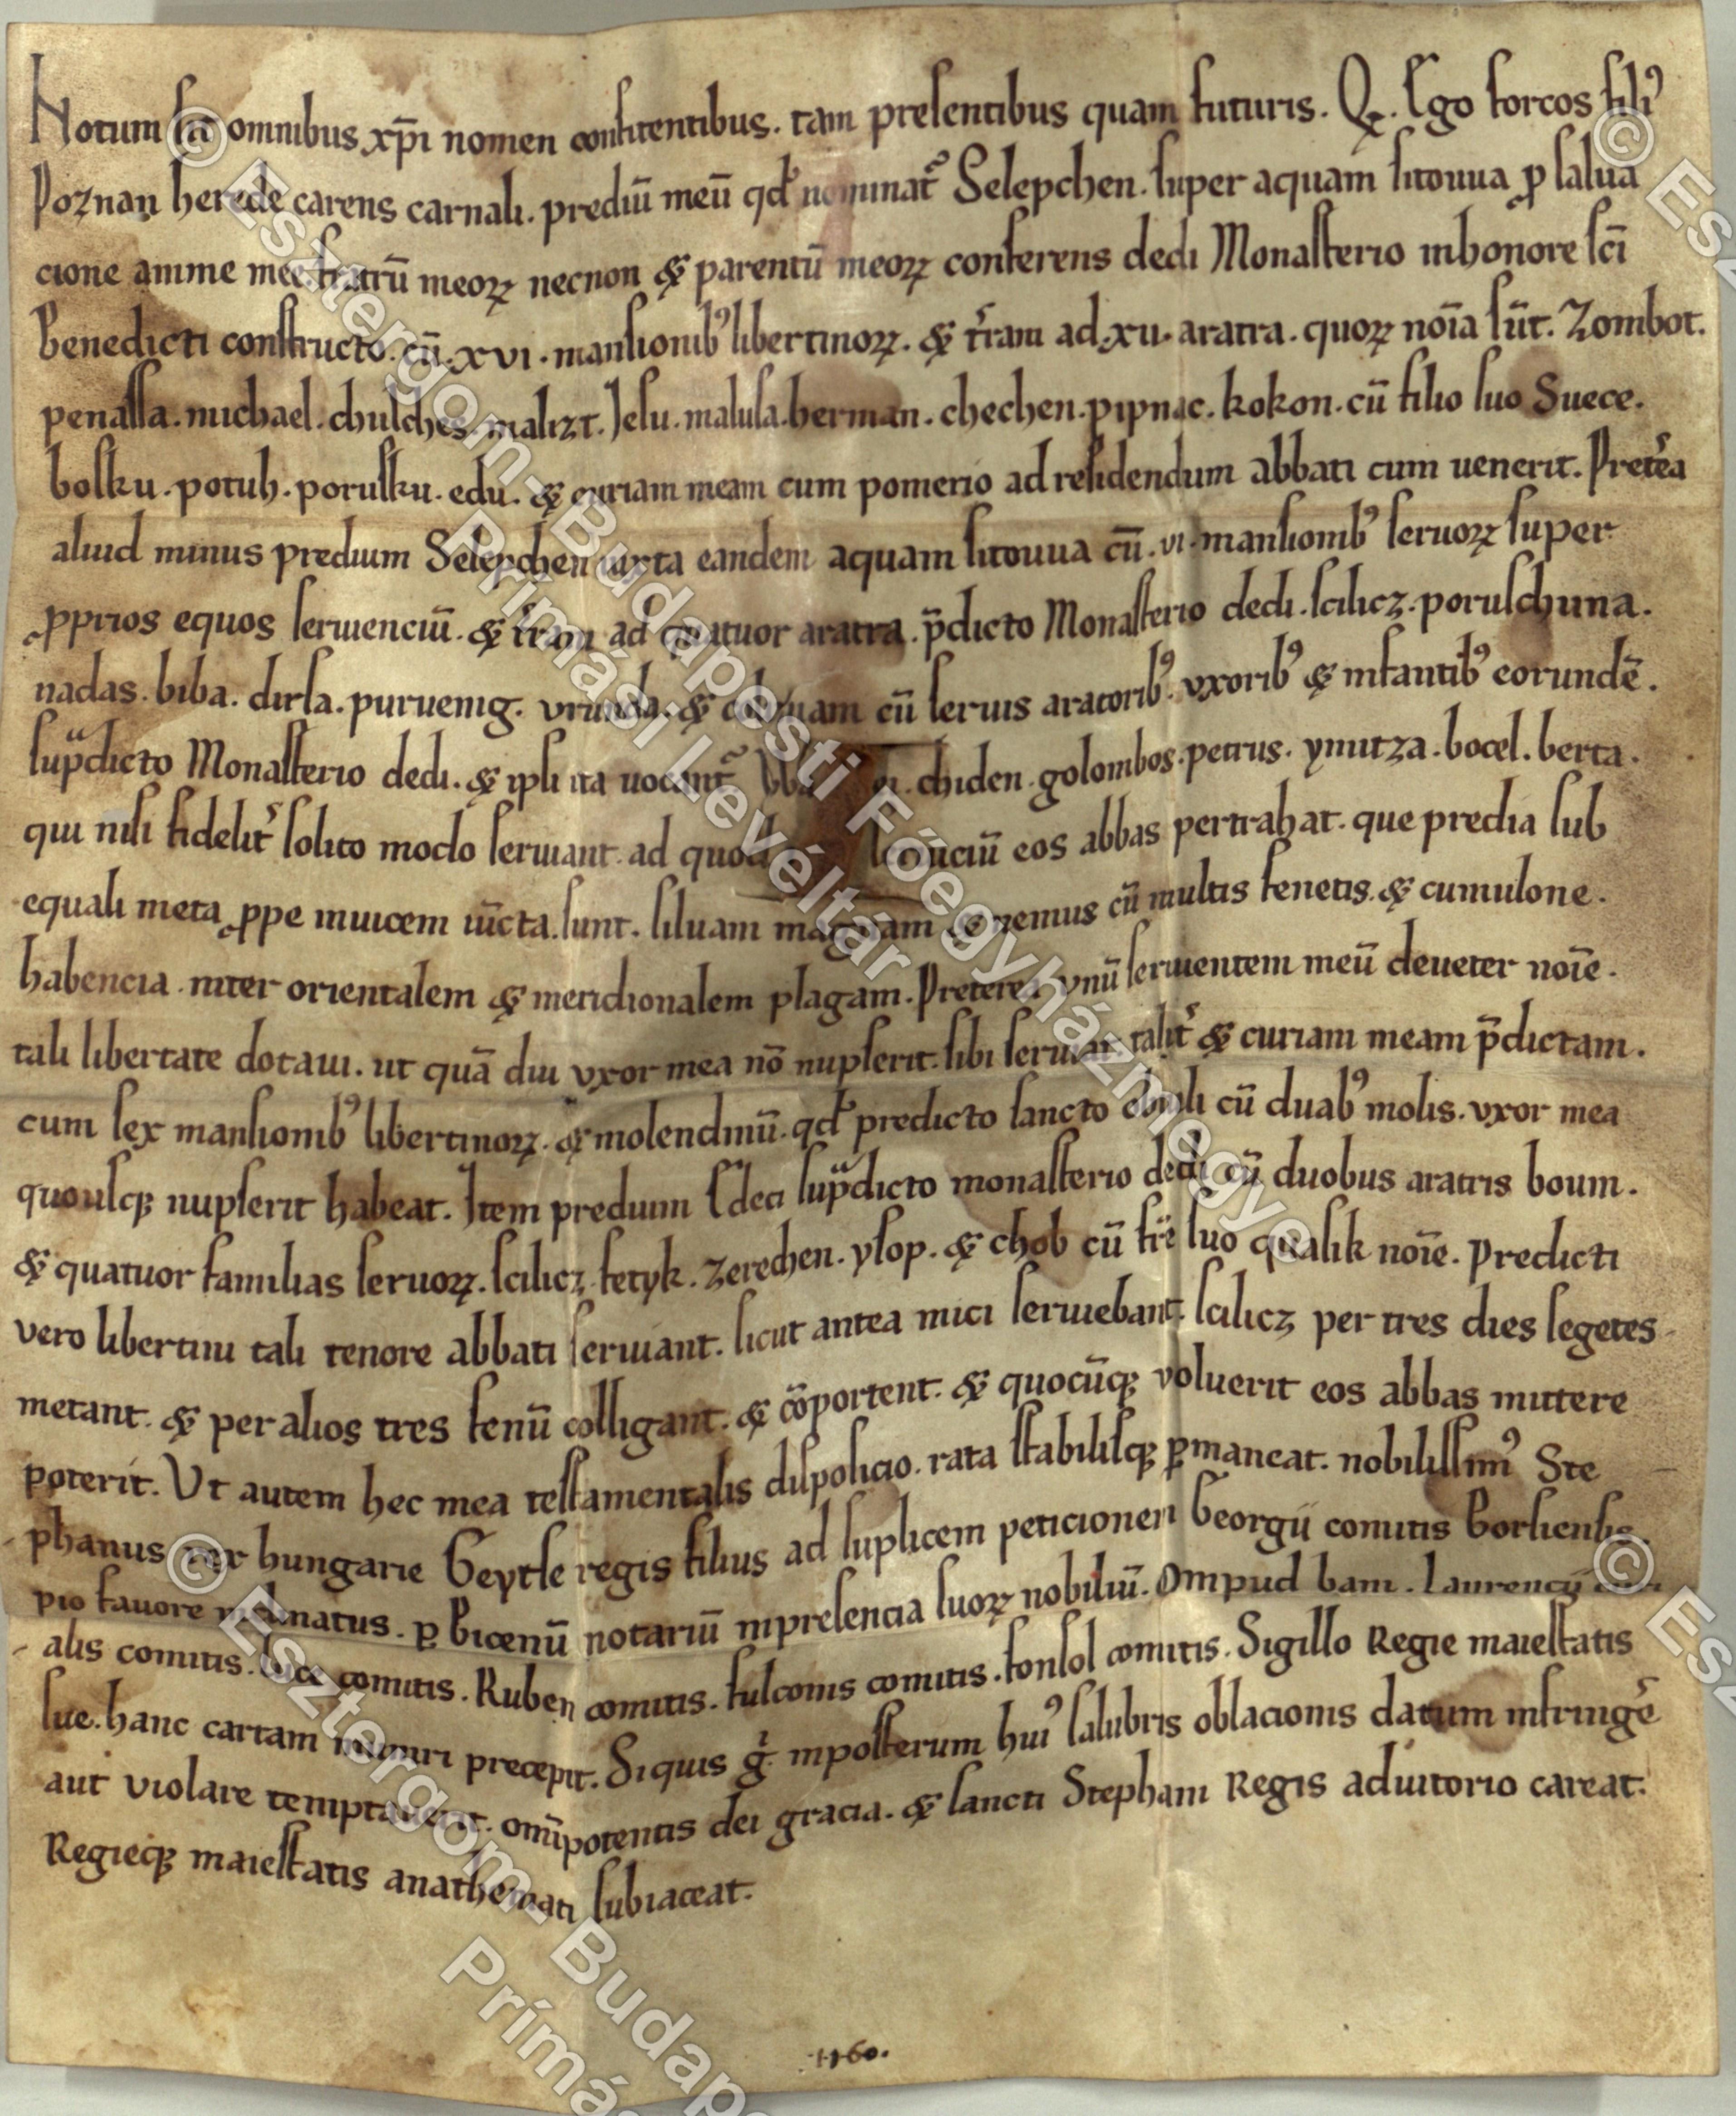 Notum sit omnibus xp̄i nomen confitentibus. tam presentibus quam futuris. Q. Ego forcos filiꝰ
Poznan herede carens carnali. prediū meū qd̄ nominat᷑ Selepchen. super aquam sitouua ꝓ salua
cione anime mee fratrū meoꝝ necnon & parentū meoꝝ conferens dedi Monasterio inhonore sc̄i
Benedicti constructo. cū. xvi. mansionibꝰ libertinoꝝ. & t̄ram ad. xv. aratra. quoꝝ noīa sūt. Zombot.
penassa. michael. chulches. malizt. Jesu. malusa. herman. chechen. pipnac. kokon. cū filio suo Suece.
bosku. potuh. porusku. edu. & curiam meam cum pomerio ad residendum abbati cum uenerit. Pret̄ea
aliud minus predium Selepchen iuxta eandem aquam sitouua cū. vi. mansionibꝰ seruoꝝ super
ꝓprios equos seruienciū. & t̄ram ad quatuor aratra. p̄dicto Monasterio dedi. scilicꝫ. poruschuna.
nadas. biba. dirsa. puruenig. vrunda. & cū seruis aratoribꝰ. vxoribꝰ & infantibꝰ eorundē.
sup̄dicto Monasterio dedi. & ipsi ita uocant᷑ chiden. golombos. petrus. ynutza. bocel. berta.
qui nisi fidelit᷑ solito modo seruiant. ad quod seruiciū eos abbas pertrahat. que predia sub
equali meta ꝓpe inuicem iūcta. sunt. siluam magnam & nemus cū multis fenetis. & cumulone.
habencia. inter orientalem & meridionalem plagam. Preterea vnū seruientem meū deueter noīe.
tali libertate dotaui. ut quā diu vxor mea nō nupserit. sibi seruiat talit᷑ & curiam meam p̄dictam.
cum sex mansionibꝰ libertinoꝝ. & molendinū. qd̄ predicto sancto obtuli cū duabꝰ molis. vxor mea
quousqꝫ nupserit habeat. Item predium Sdeci sup̄dicto monasterio dedi cū duobus aratris boum.
& quatuor familias seruoꝝ. scilicꝫ fetyk. zerechen. ysop. & chob cū fr̄e suo qualik noīe. Predicti
vero libertini tali tenore abbati seruiant. sicut antea mici seruiebant. scilicꝫ per tres dies segetes
metant. & per alios tres fenū colligant. & cōportent. & quocūqꝫ voluerit eos abbas mittere
poterit. Ut autem hec mea testamentalis disposicio. rata stabilisqꝫ ꝑmaneat. nobilissimꝰ Ste
phanus rex hungarie Geyse regis filius ad suplicem peticionem Georgii comitis Borsiensis.
pio fauore inclinatus. ꝑ Bicenū notariū inpresencia suoꝝ nobiliū. Ompud bani. Laurencij curi
alis comitis. luce comitis. Ruben comitis. fulconis comitis. fonsol comitis. Sigillo Regie maiestatis
sue. hanc cartam muniri precepit. Siquis g̊ inposterum huiꝰ salubris oblacionis datum infringe᷑
aut violare temptauerit. omīpotentis dei gracia. & sancti Stephani Regis adiutorio careat.
Regieqꝫ maiestatis anathemati subiaceat.
·1160.
© Esztergom-Budapesti Főegyházmegye
Prímási Levéltár
© Esztergom-Budap
Prímás
© Esz
© Esz